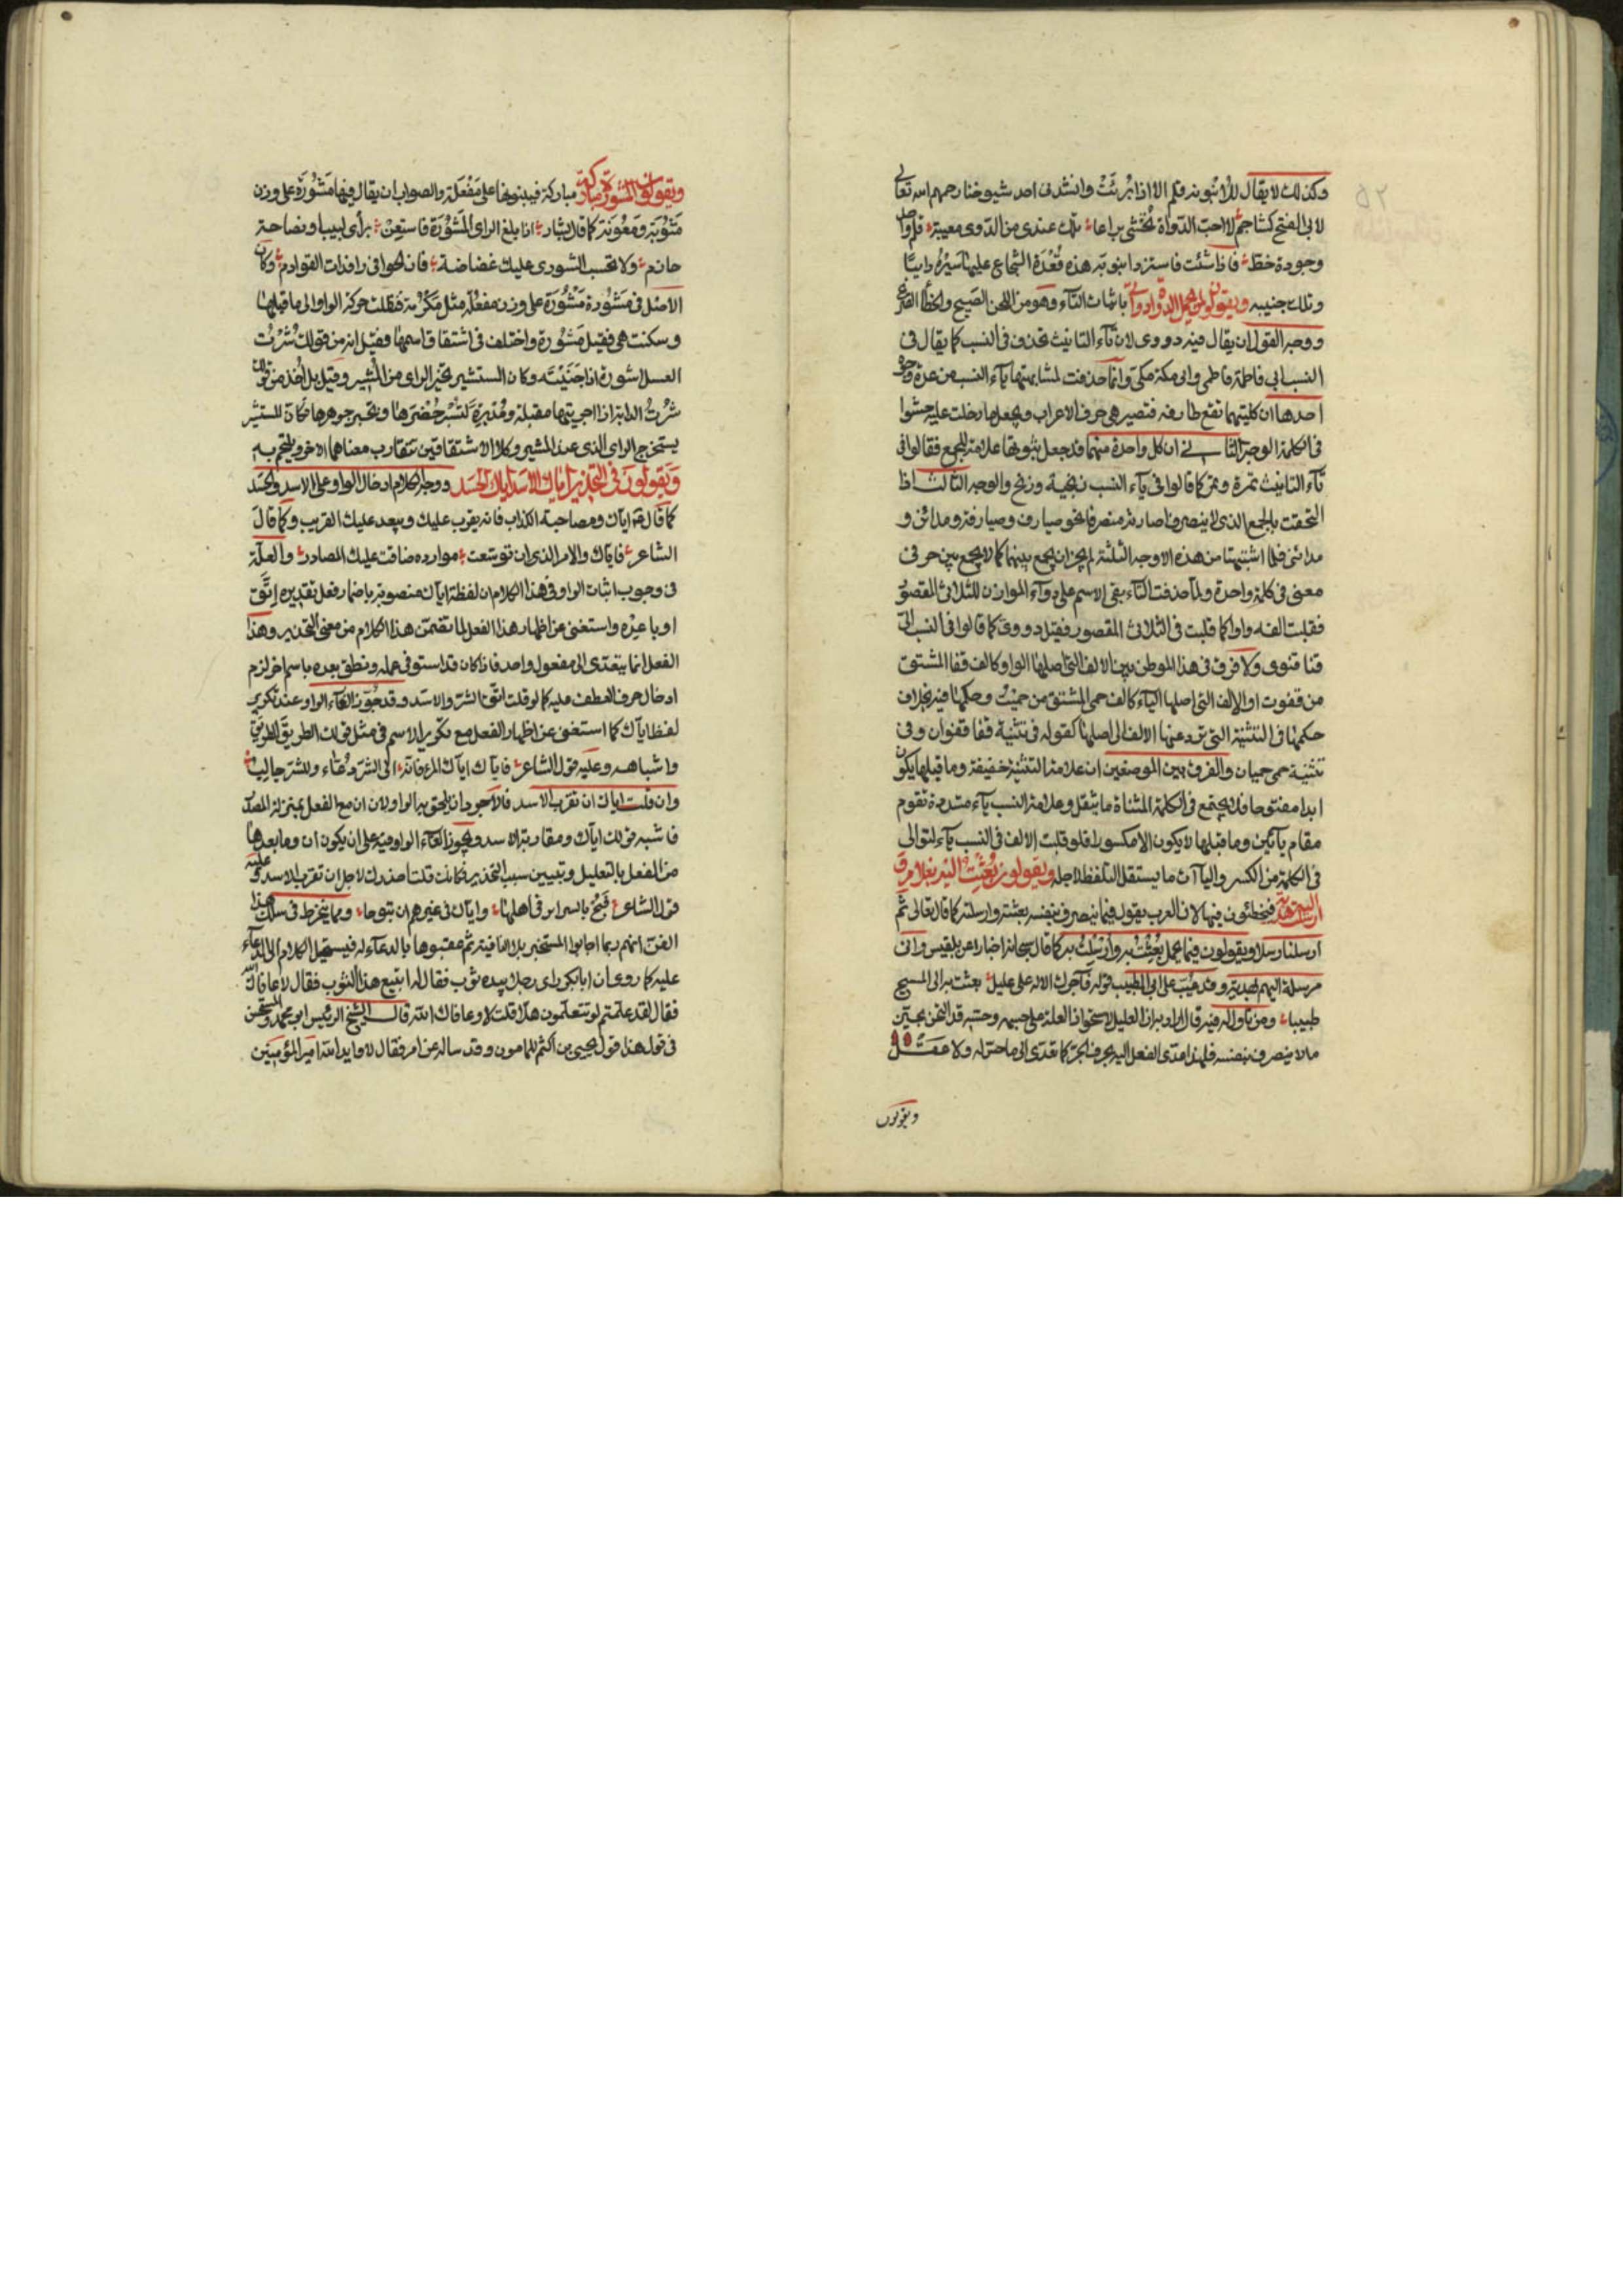 وكذلك لا يقال للانبوبة قلم الا اذا بُرِيَتْ وانشدنى احد شيوخنا رحمهم الله تعالى
لابى الفتح كشاجم لا احب الدواة تحشى يراعا تلك عندى من الدوى معيبة قلم واحد
وجودة خط فاذا شئت فاستزد انبوبة هذه قعدة الشجاع عليها سيره دايبا
وتلك جنيبه ويقولون لمن يحمل الدواة دواتى باثبات التاء وهو من اللحن القبيح والخطأ الصريح
ووجه القول ان يقال فيه دووى لان تاء التانيث تحذف فى النسب كما يقال فى
النسب الى فاطمة فاطمى والى مكة مكى وانما حذفت لمشابهتها ياء النسب من عدة وجوه
احدها ان كلتيهما تقع طارفة فتصير هى حرف الاعراب ويجعل ما دخلت عليه حشوا
فى الكلمة الوجه الثانى ان كل واحدة منهما قد جعل ثبوتها علامة للجمع فقالوا فى
تاء التانيث تمرة وتمر كما قالوا فى ياء النسب زنجية وزنج والوجه الثالث اذا
التحقت بالجمع الذى لا ينصرف اصارته منصرفا نحو صيارف وصيارفة ومدائن و
مدائنى فلما اشتبهتا من هذه الاوجه الثلثة لم يجز ان يجمع بينهما كما لا يجمع بين حرفى
معنى فى كلمة واحدة ولما حذفت التاء بقى الاسم على دوا الموازن للثلاثى المقصور
فقلبت الفه واوا كما قلبت فى الثلاثى المقصور فقيل دووى كما قالوا فى النسب الى
قنا قنوى ولا فرق فى هذا الموطن بين الالف التى اصلها الواو كالف قفا المشتق
من قفوت او الالف التى اصلها الياء كالف حمى المشتق من حميت وحكمها فيه بخلاف
حكمها فى التثنية التى ترد عنها الالف الى اصلها كقوله فى تثنية قفا قفوان وفى
تثنية حمى حميان والفرق بين الموضعين ان علامة التثنية خفيفة وما قبلها يكون
ابدا مفتوحا فلا يجتمع فى الكلمة المثناة ما يثقل وعلامة النسب ياء مشددة تقوم
مقام يائين وما قبلها لا يكون الا مكسورا فلو قلبت الالف فى النسب ياء لتوالى
فى الكلمة من الكسر والياآت ما يستثقل التلفظ لاجله ويقولون بعثت اليه بغلام و
ارسلت اليه هدية فيخطئون فيهما لان العرب يقول فيما ينصرف بنفسه بعثته وارسلته كما قال تعالى ثم
ارسلنا رسلا ويقولون فيما يحمل بعثت به وارسلت به كما قال سبحانه اخبارا عن بلقيس وانى
مرسلة اليهم بهدية وقد عيب على ابى الطيب قوله فآجرك الاله على عليل بعثت به الى المسيح
طبيبا ومن تاول له فيه قال اراد به ان العليل لاستحواذ العلة على جسمه وحسه قد التحق بحيّز
ما لا ينصرف بنفسه فلهذا عدى الفعل اليه بحرف الجر كما تعدى الى ما لا حس له ولا عقل
ويقولون
ويقولون المشورة مباركة مباركة فيبنونها على مَفْعَلَة والصواب ان يقال فيها مَشُورَة على وزن
مَثُوبَة ومَعُونَة كما قال بشار اذا بلغ الراى المشورة فاستعن برأى لبيب او نصاحة
حازم ولا تحسب الشورى عليك غضاضة فان الخوافى رافدات القوادم وكان
الاصل فى مشورة مَشْوُرَة على وزن مفعُلة مثل مكرُمة فنقلت حركة الواو الى ما قبلها
وسكنت هى فقيل مَشُورة واختلف فى اشتقاق اسمها فقيل انه من قولك شُرْتُ
العسل اشوره اذا جنيته وكان المستشير يجنى الراى من المشير وقيل بل اخذ من قولك
شُرْتُ الدابة اذا اجريتها مقبلة ومُدْبِرة لتسبر حضرها وتخبر جوهرها فكان المستشير
يستخرج الراى الذى عند المشير وكلا الاشتقاقين تتقارب معناهما الاخر ويلتحم به
ويقولون فى التحذير اياك الاسد اياك الحسد ووجه الكلام ادخال الواو على الاسد والحسد
كما قال اياك ومصاحبة الكذاب فانه يقرب عليك البعيد ويبعد عليك القريب وكما قال
الشاعر فاياك والامر الذى ان توسعت موارده ضاقت عليك المصادر والعلة
فى وجوب اثبات الواو فى هذا الكلام ان لفظة اياك منصوبة باضمار فعل تقديره اتق
او باعد واستغنى عن اظهار هذا الفعل لما تضمن هذا الكلام من معنى التحذير وهذا
الفعل انما يتعدى الى مفعول واحد فاذا كان قد استوفى عمله ونطق بعده باسم اخر لزم
ادخال حرف العطف عليه كما لو قلت اتق الشر والاسد وقد جوز الغاء الواو عند تكرير
لفظ اياك كما استغنى عن اظهار الفعل مع تكرير الاسم فى مثل قولك الطريق الطريق
واشباهه وعليه قول الشاعر فاياك اياك المراء فانه الى الشر دعاء وللشر جالب
وان قلت اياك ان تقرب الاسد فالاجود ان يلحق به الواو لان ان مع الفعل بمنزلة المصدر
فاشبه قولك اياك ومقاربة الاسد ويجوز الغاء الواو فيه على ان يكون ان وما بعدها
من الفعل بالتعليل وتبيين سبب التحذير فكانك قلت احذرك لاجل ان تقرب الاسد وعليه
قول الشاعر فبح بالسراير فى اهلها واياك فى غيرهم ان تبوحا ومما ينخرط فى سلك هذا
الفن انهم ربما اجابوا المستخبر بلا النافية ثم عقبوها بالدعاء له فيستحيل الكلام الى الدعاء
عليه كما روى ان ابا بكر راى رجلا بيده ثوب فقال له اتبيع هذا الثوب فقال لا عافاك الله
فقال لقد علمتم لو تتعلمون هلا قلت لا وعافاك الله قال الشيخ الرئيس ابو محمد والمستحسن
فى قوله هذا قول يحيى بن اكثم للمامون وقد ساله عن امر فقال لا وايد الله امير المؤمنين